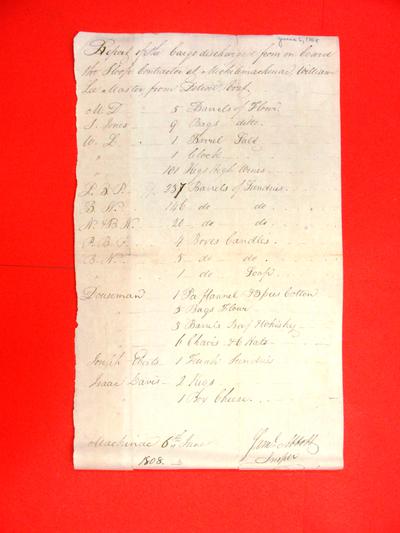 June 6, 1808
Report of the Cargo discharged from on board
the Sloop Contractor at Michilimackinac, William
Lee Master, from Detroit
M. D 5 Barrels of Flour
S. Jones 9 Bags ditto
W. L 1 Barrel
" 1 Clock
" 101 Kegs high Wines
L & P. 237 Barrels of Sundries
B. N. 146 do do
20 do do
4 Boxes Candles
B. N. 5 do do
" 1 do Soap
Douseman 1 Ps flannel Cotton
5 Bags Flour
3 Barrels Whiskey
6 Chairs & 6 Hats
Joseph 1 Trunk Sundries
Isaac Davis 2 Kegs
1 Box Cheese
Mackinac 6th June
1808
Saml Abbott